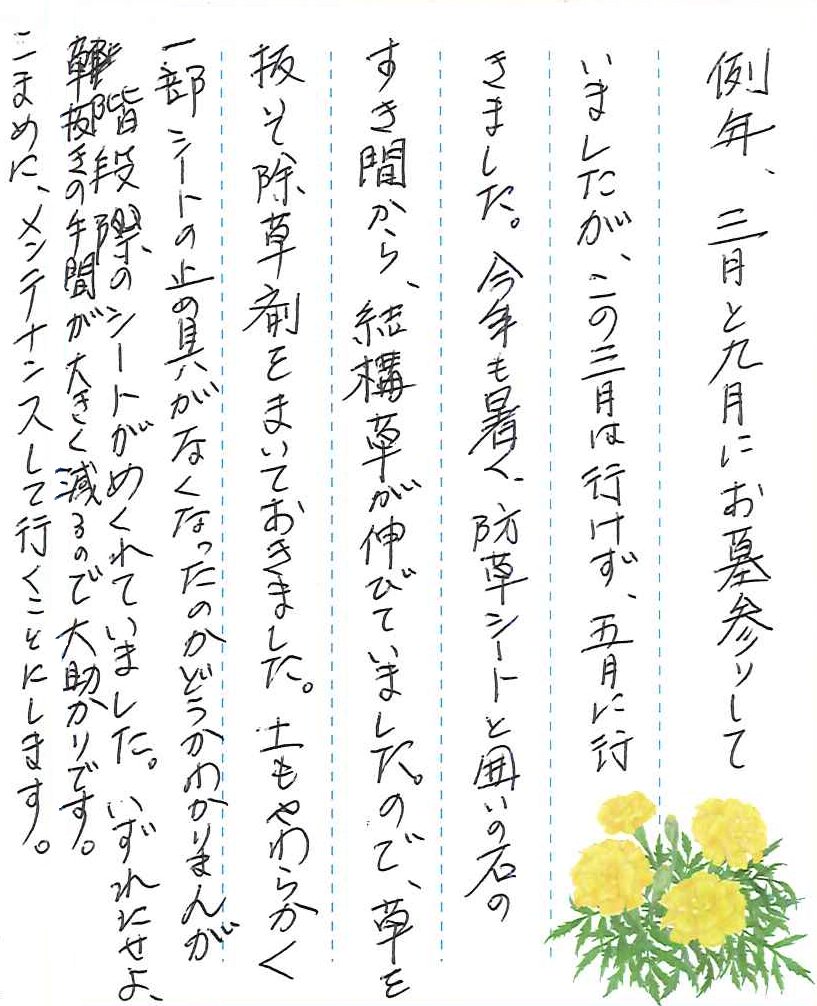 例年、三月と九月にお墓参りして
いましたが、この三月は行けず、五月に行
きました。今年も暑く、防草シートと囲いの石の
すき間から、結構草が伸びていました。ので、草を
抜き除草剤をまいておきました。土もやわらかく
一部シートの止め具がなくなったのかどうかわかりまんが
階段際のシートがめくれていました。いずれにせよ、
草抜きの手間が大きく減るので大助かりです。
こまめに、メンテナンスして行くことにします。